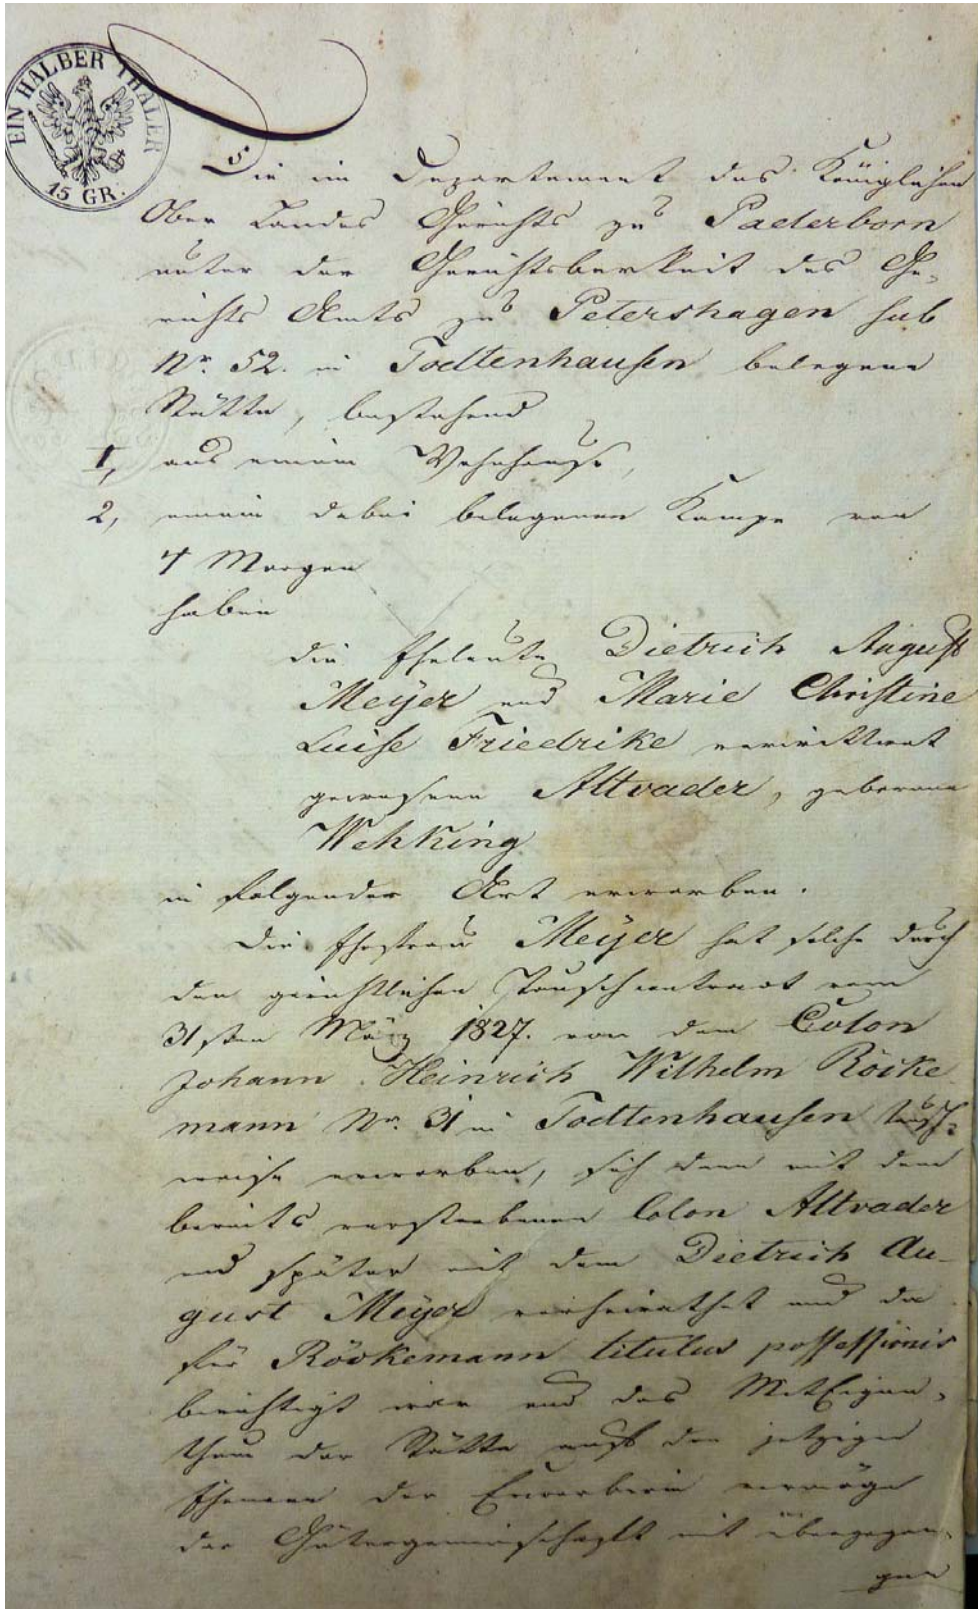 EIN HALBER THALER
15 GR.
Die im Departement des Königlichen
Ober Landes Gerichts zu Paderborn
unter der Gerichtsbarkeit des Ge-
richts Amts zu Petershagen sub
Nr. 52. in Todtenhausen belegene
Stätte, bestehend
1, aus einem Wohnhause,
2, einem dabei belegenen Kampe von
4 Morgen
haben
die Eheleute Dietrich August
Meyer und Marie Christine
Luise Friedrike verwittwet
gewesene Altvader, geborene
Wehking
in folgender Art erworben.
Die Ehefrau Meyer hat solche durch
den gerichtlichen Tauschcontract vom
31sten März 1827. von dem Colon
Johann Heinrich Wilhelm Röcke
mann Nr. 31 in Todtenhausen tausch-
weise erworben, sich dann mit dem
bereits verstorbenen Colon Altvader
und später mit dem Dietrich Au-
gust Meyer verheirathet und da
für Röckemann titulus possessionis
berichtigt war und das MitEigen-
thum der Stätte auf den jetzigen
Ehemann der Erwerberin vermöge
der Gütergemeinschaft mit übergegan-
gen